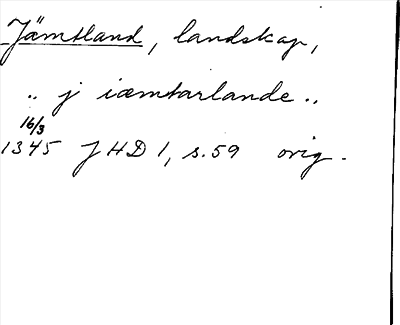 Jämtland, landskap,
.. j iæmtarlande ..
16/3
1345 JHD 1, s. 59 orig.